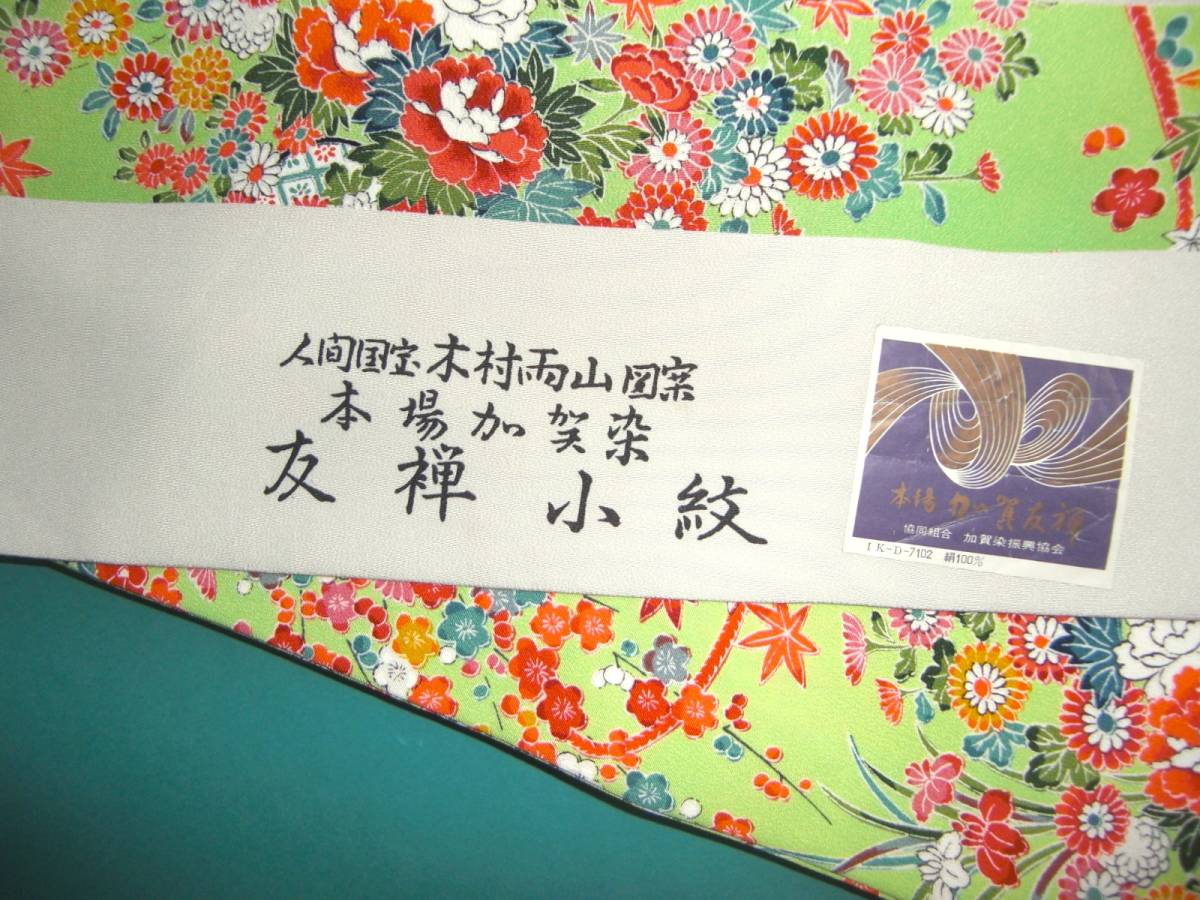 人間国宝木村雨山図案
本場加賀染
友禅小紋
本場加賀友禅
協同組合 加賀染振興協会
IK-D-7102 絹100%